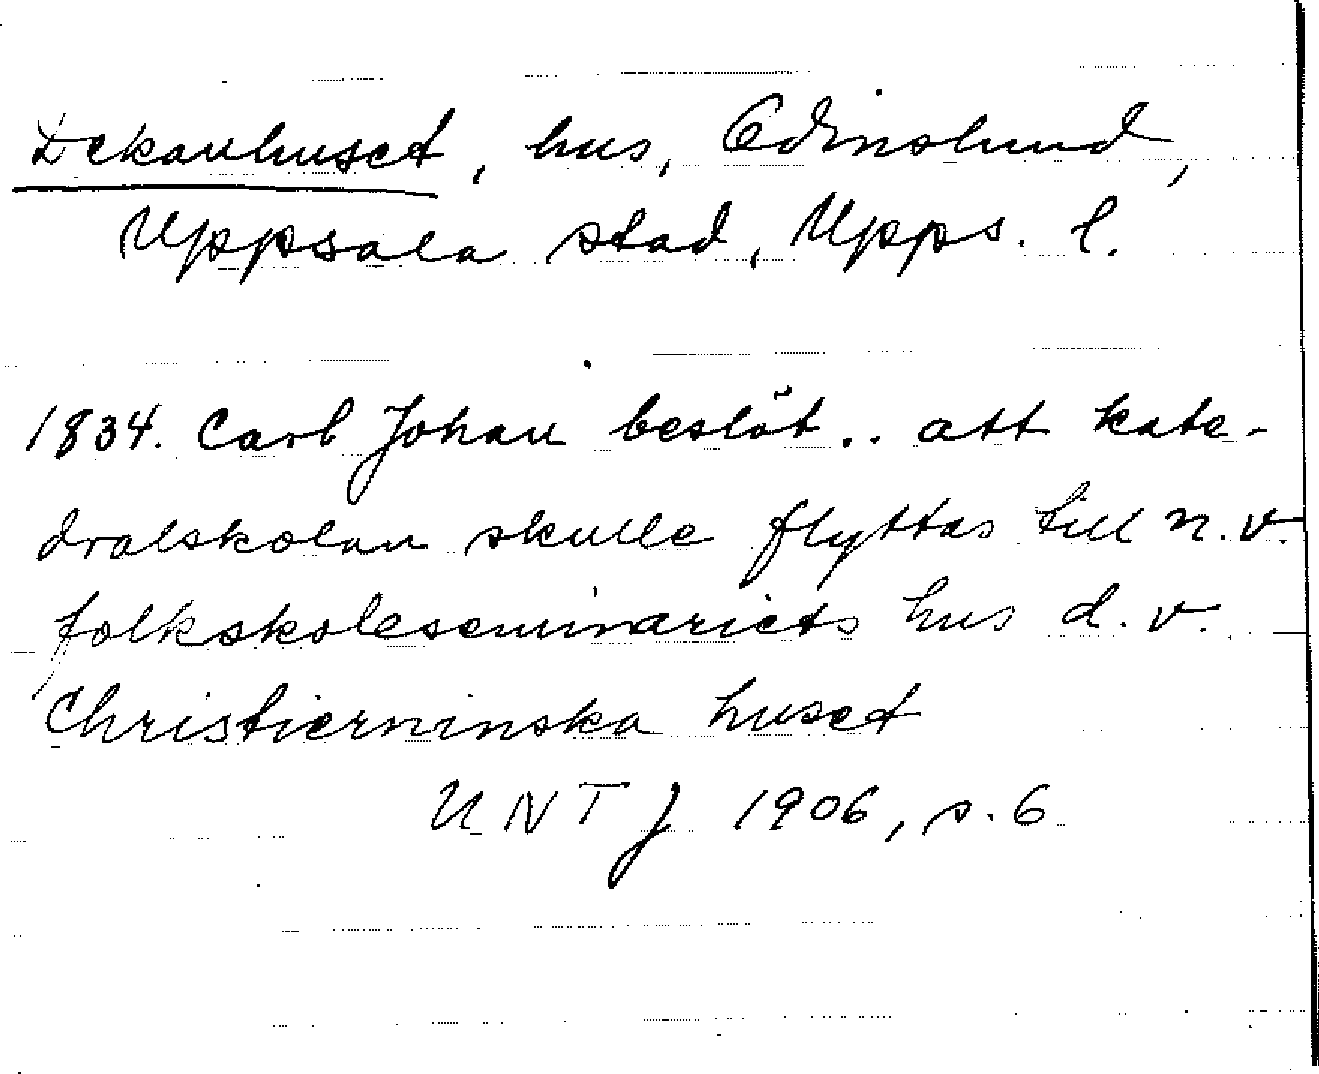 Dekanhuset, hus, Odinslund,
Uppsala stad, Upps. l.
1834. Carl Johan beslöt.. att kate-
dralskolan skulle flyttas till n.v.
folkskoleseminariets hus d.v.
Christierninska huset
UNTJ 1906, s. 6